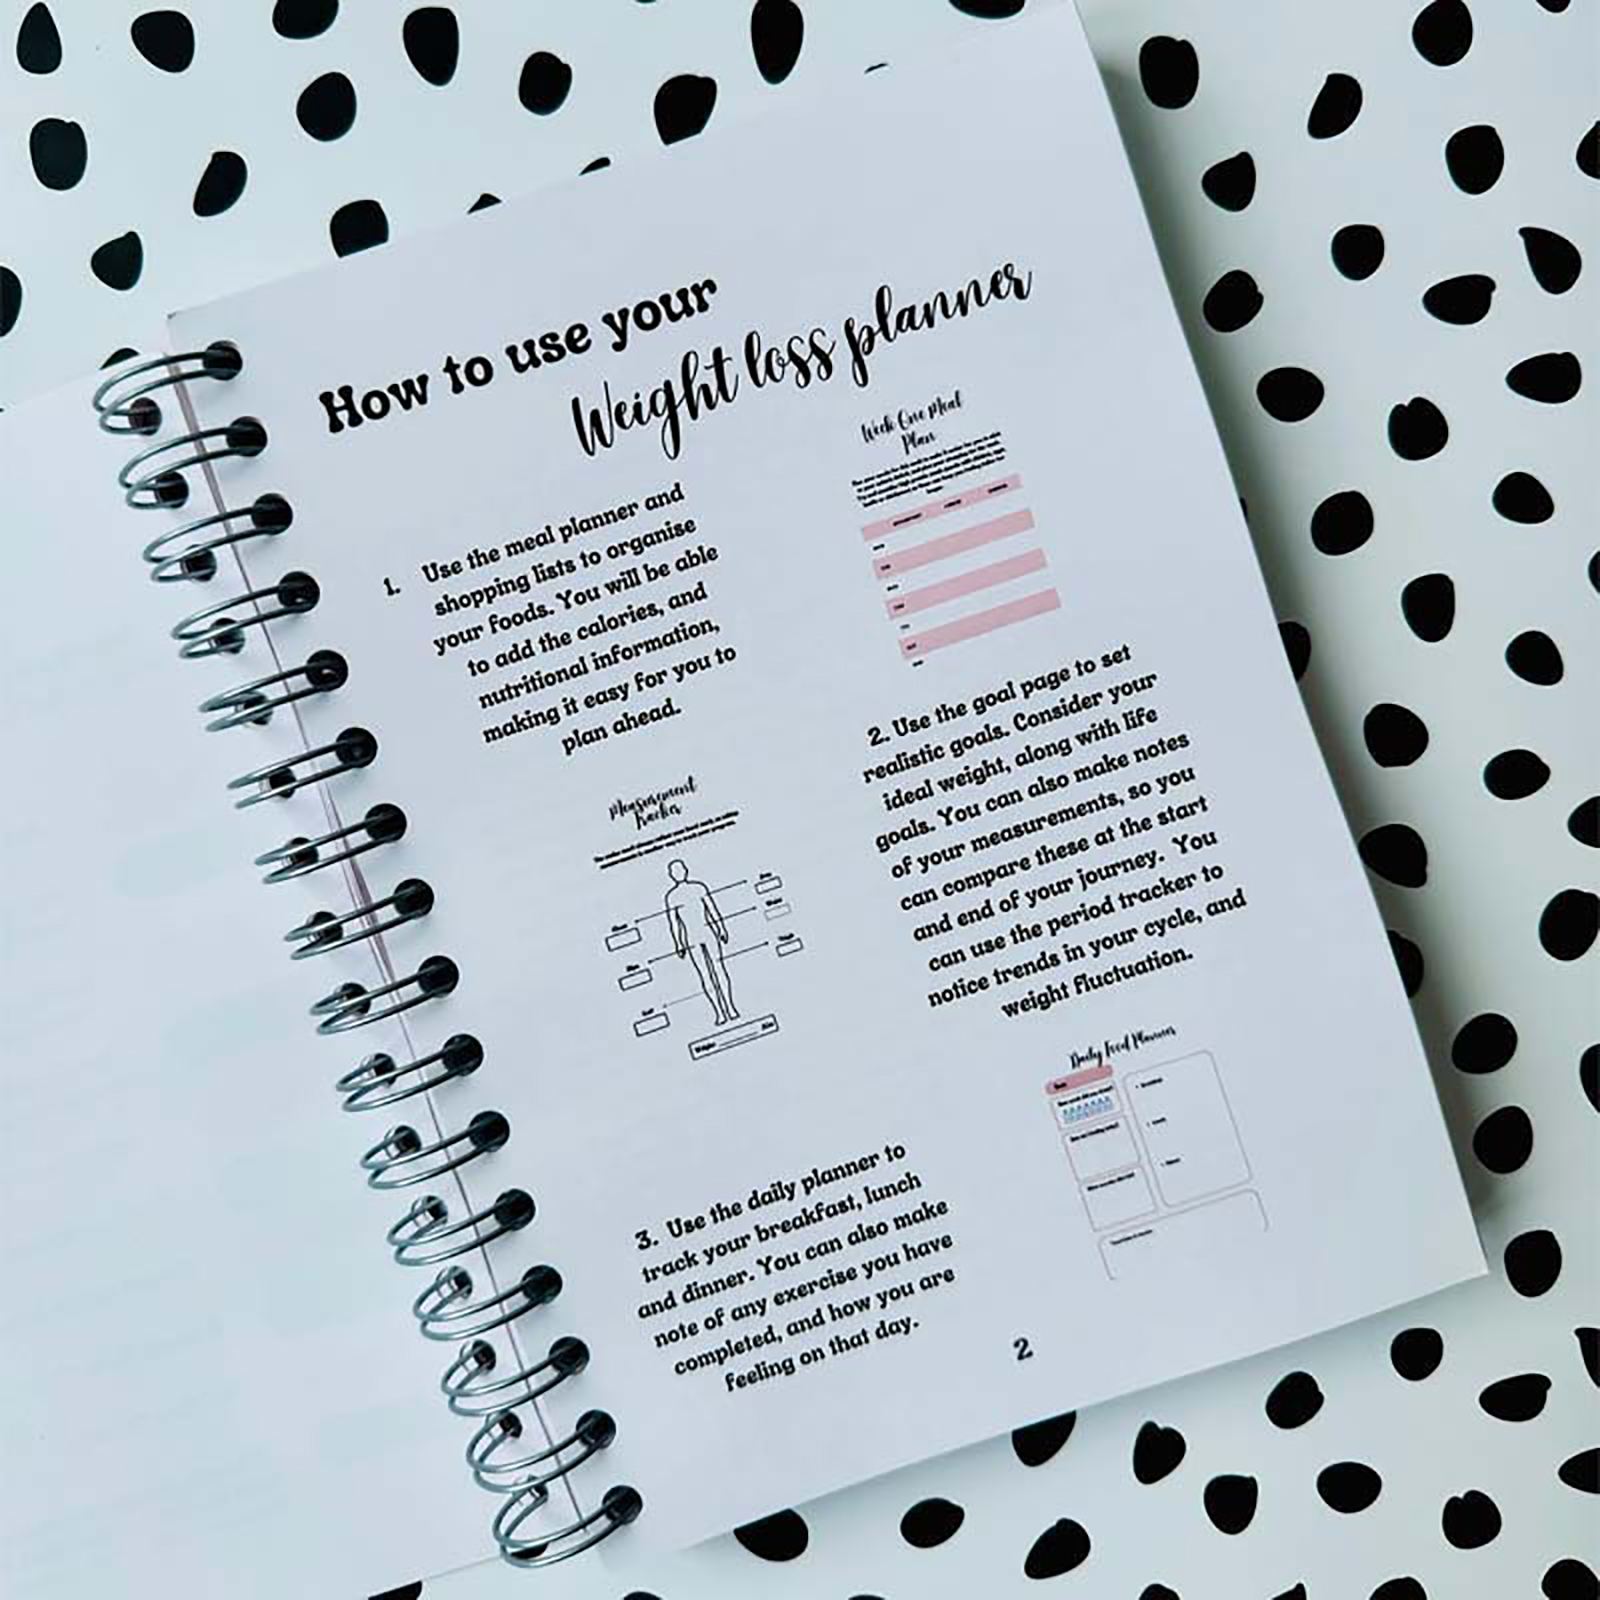 How to use your
Weight loss planner
1. Use the meal planner and
shopping lists to organise
your foods. You will be able
to add the calories, and
nutritional information,
making it easy for you to
plan ahead.
Week One Meal
Plan
2. Use the goal page to set
realistic goals. Consider your
ideal weight, along with life
goals. You can also make notes
of your measurements, so you
can compare these at the start
and end of your journey. You
can use the period tracker to
notice trends in your cycle, and
weight fluctuation.
Measurement
Tracker
Daily Food Planner
3. Use the daily planner to
track your breakfast, lunch
and dinner. You can also make
note of any exercise you have
completed, and how you are
feeling on that day.
2